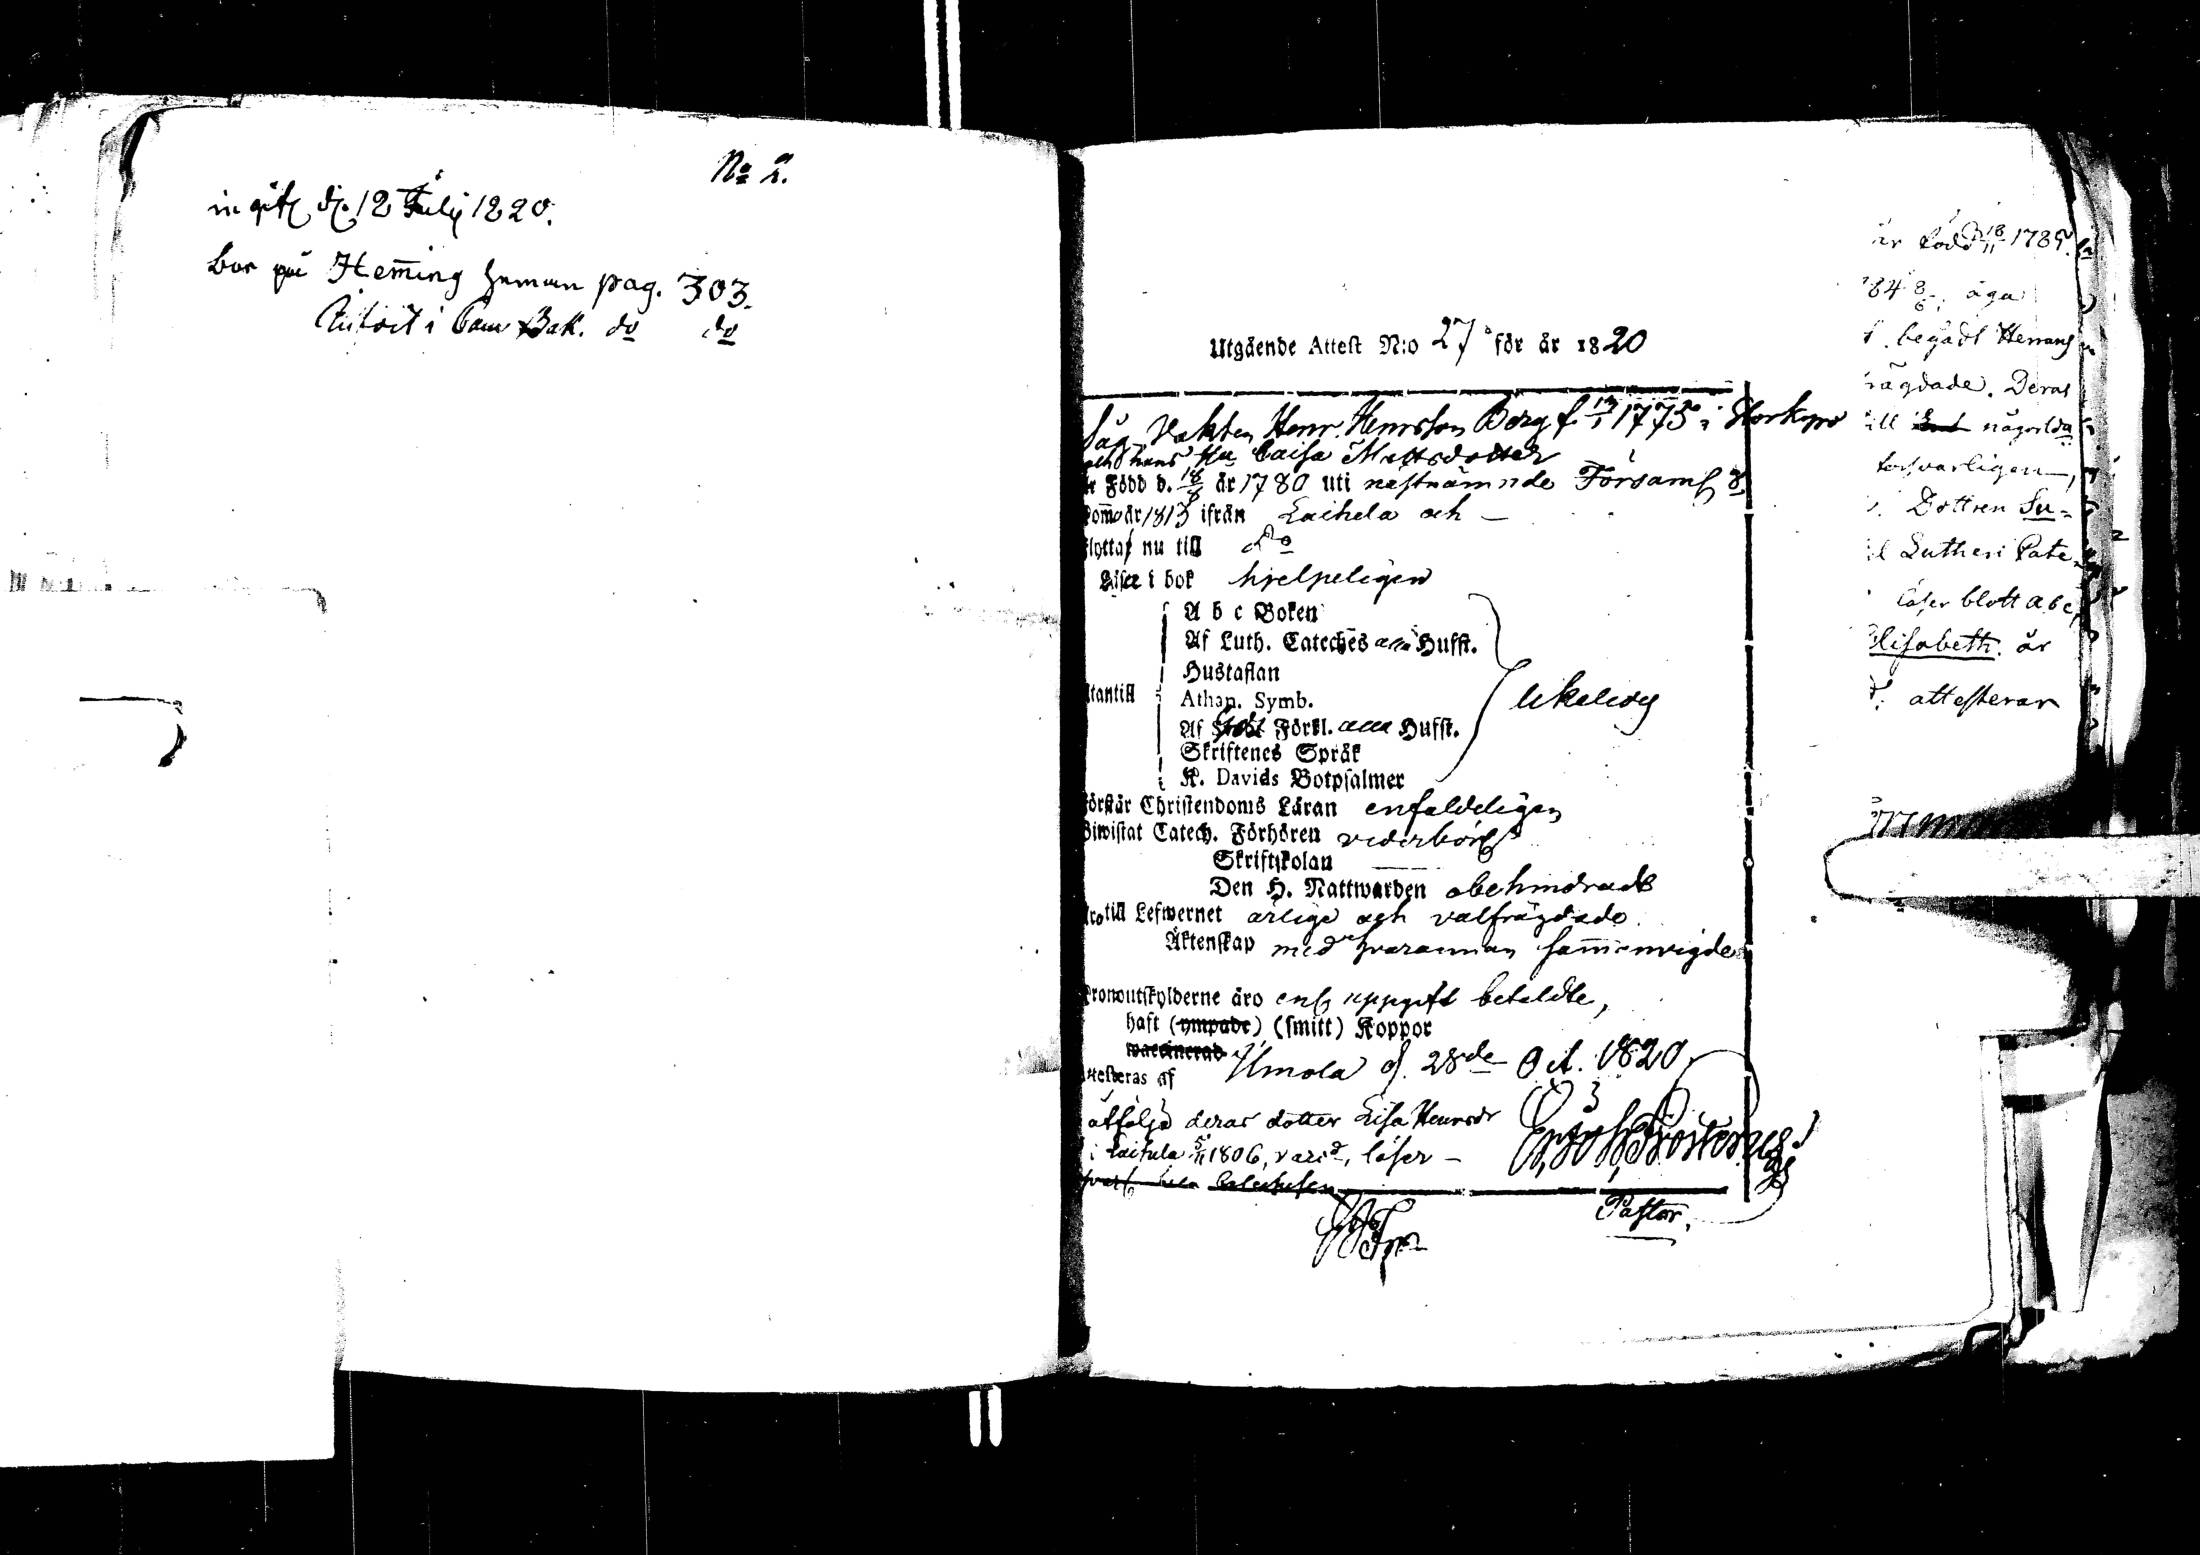 No 2.
d. 12 July 1820.
bor på Heming heman pag. 303.
i Bak. do do
Utgående Attest N:o 27 för år 1820
Henr. Henrsson Berg f. 13/1 1775 i Storkyro
och hans Hu Caisa Mattsdotter
är Född d. 18/8 år 1780 uti nestnämnde Församl
Kom år 1813 ifrån Laihela och –
flyttar nu till do
Läser i bok hjelpeligen
A b c Boken
Af Luth. Cateches alla Hufst.
Hustaflan
Utantill Athan. Symb. likaledes
Af Förkl. alla Hufst.
Skriftenes Språk
K. Davids Botpsalmer
Förstår Christendoms Läran enfaldeligen
Biwistat Catech. Förhören vederbörl
Skriftskolan —
Den H. Nattwarden obehindrade
äro till Lefwernet ärlige och välfrägdade
Äktenskap med hvarannan sammanvigde
Kronoutskylderne äro enl uppgift betaldte,
haft (ympade) (smitt) Koppor
waccinerad
Attesteras af Ilmola d. 28de Oct. 1820
åtföljd deras dotter Lisa Henrsdr
i Laihela 5/11 1806, läser –
Pastor.
är född 18/11 1785.
784 8/6, äga
begådt Herrans
frägdade. Deras
till någorlda
försvarligen,
Dottren Su=
Lutheri Cate=
läser blott abc,
Elisabeth. är
attesterar